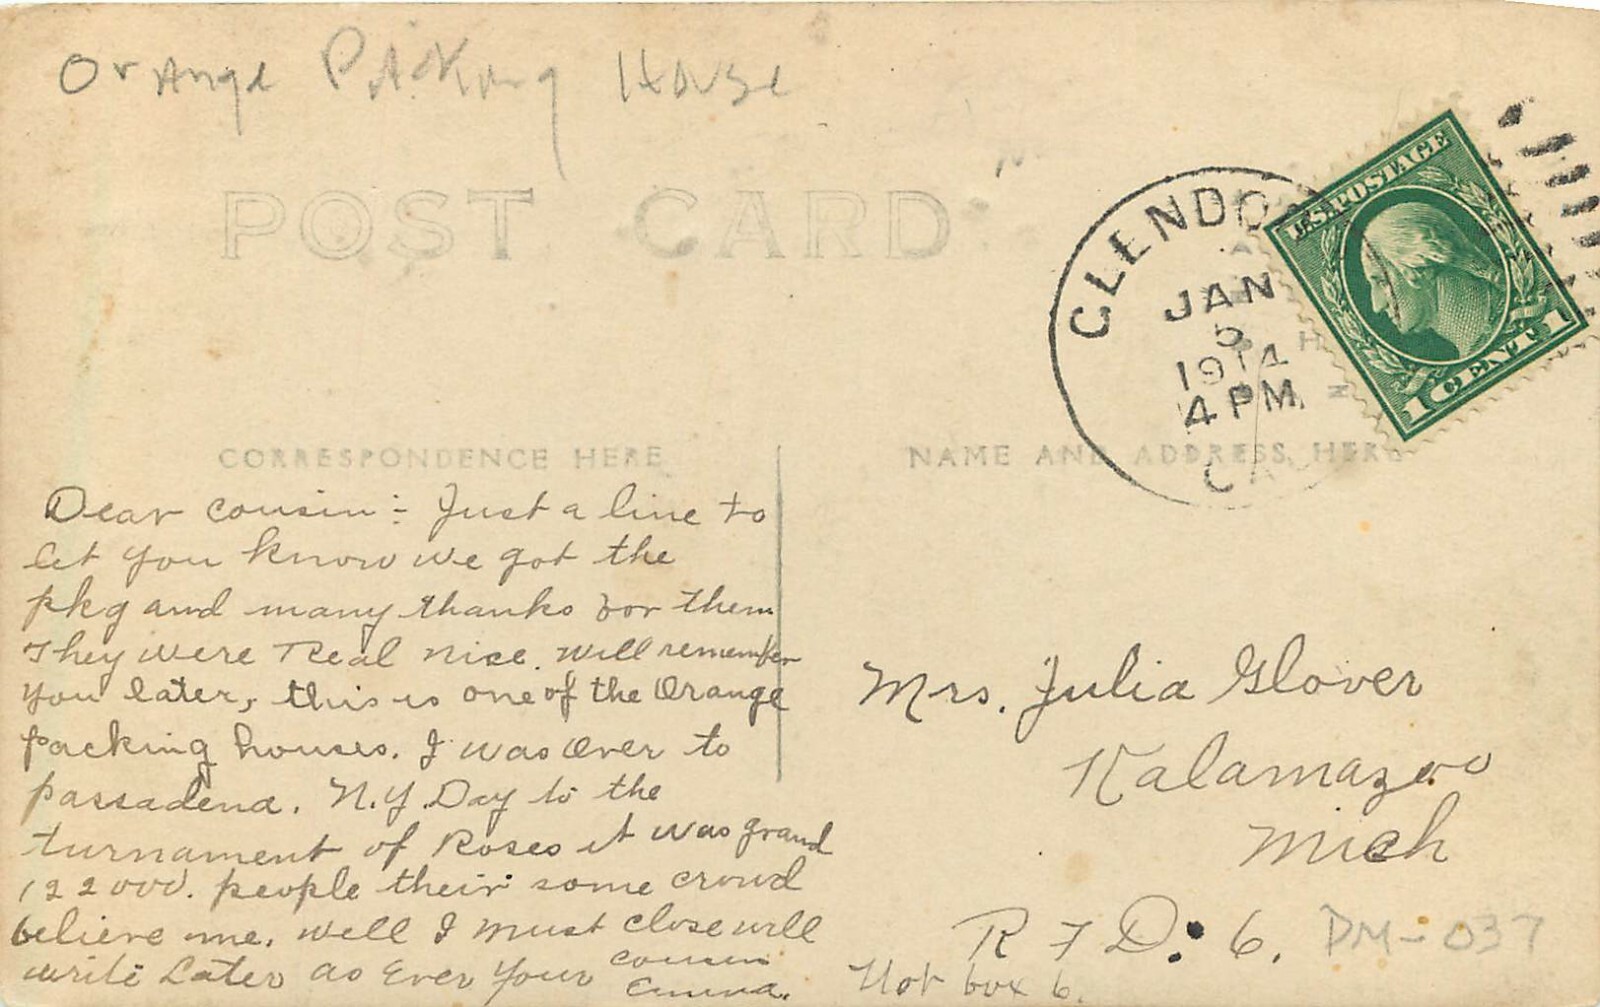 Orange Packing House
POST CARD
CLENDO
JAN
5
1914
4 PM
CAL
U.S. POSTAGE
1 CENT 1
CORRESPONDENCE HERE
NAME AND ADDRESS HERE
Dear cousin:- Just a line to
let you know we got the
pkg and many thanks for them
They were Real nise. Will remember
you later, this is one of the Orange
packing houses. I was over to
passadena. N.Y. Day to the
turnament of Roses it was grand
122000. people their some crowd
believe me. Well I must close will
write Later as Ever your cousin
Emma.
Mrs. Julia Glover
Kalamazoo
Mich
R F D: 6.
Not box 6.
DM-037